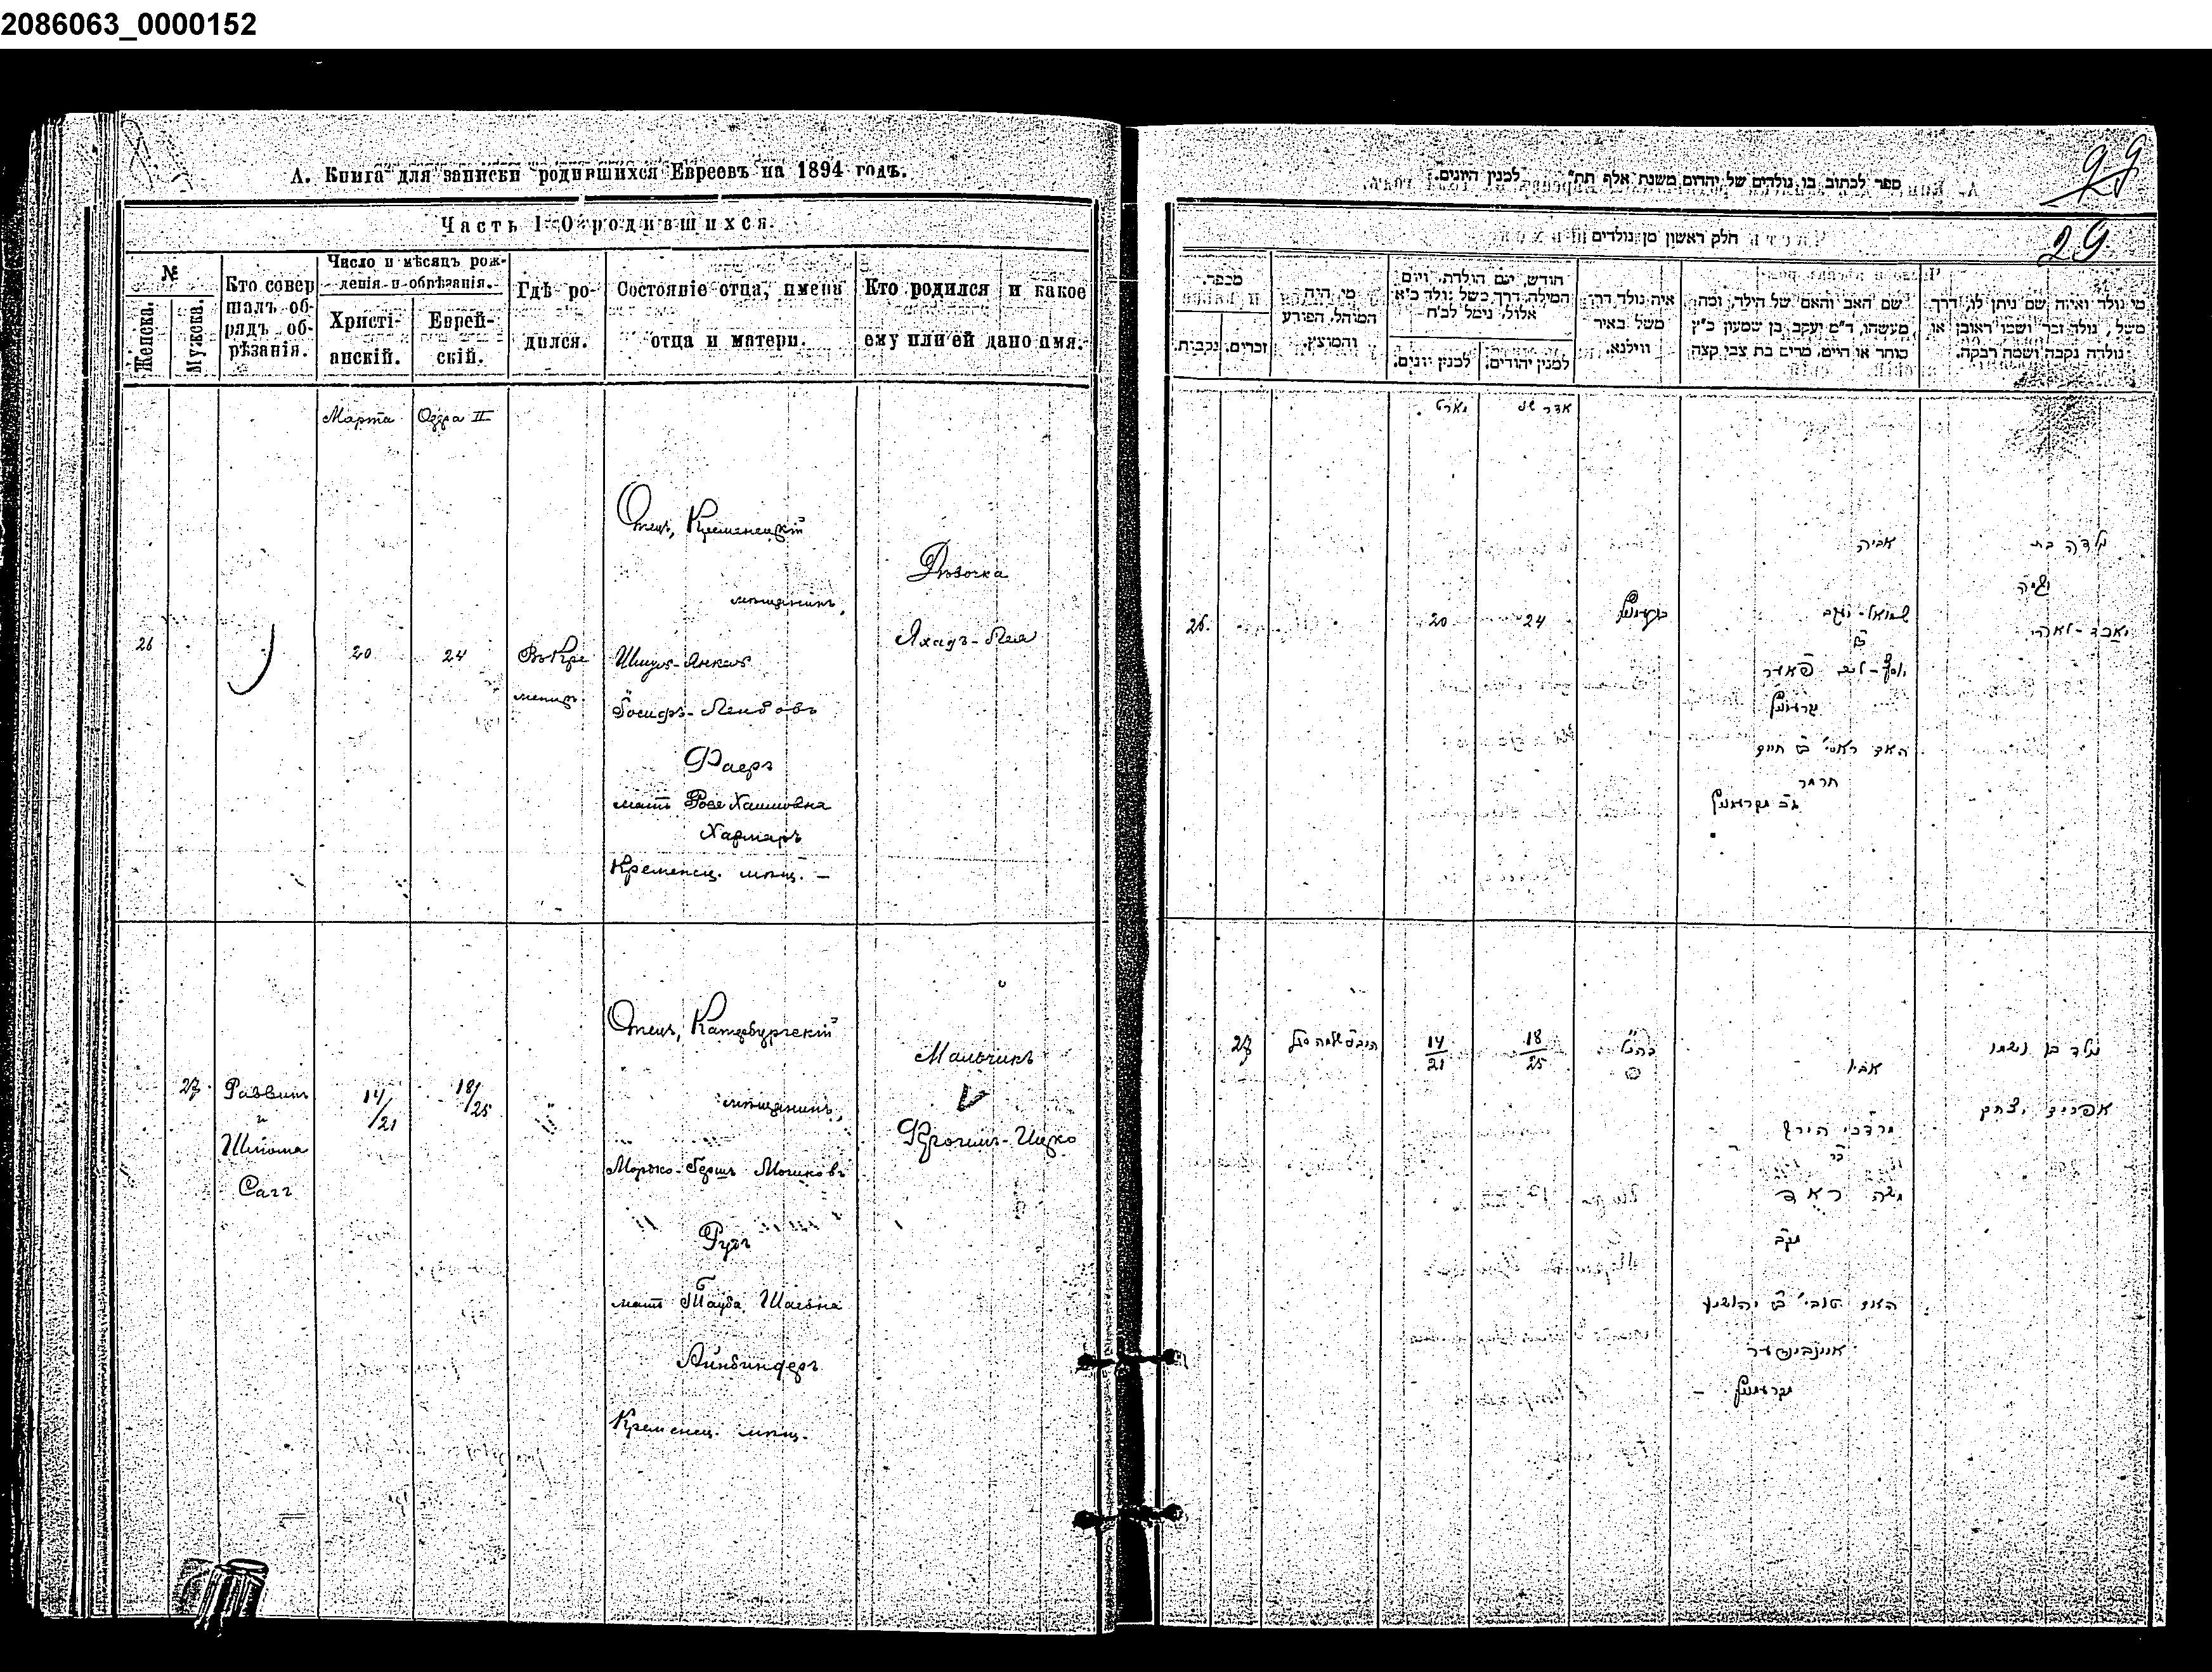 2086063_0000152
А. Книга для записки родившихся Евреевъ на 1894 годъ.
Часть I. О родившихся.
№
Женска.
Мужеска.
Кто совер
шалъ об-
рядъ об-
рѣзанія.
Число и мѣсяцъ рож-
денія и обрѣзанія.
Христі-
анскій.
Еврей-
скій.
Гдѣ ро-
дился.
Состояніе отца, имена
отца и матери.
Кто родился и какое
ему или ей дано имя.
Марта
Одра II
26
20
24
Въ Кре
менцѣ
Отецъ, Кременецкій
мѣщанинъ,
Шмуль-Янкель
Іосифъ-Лейбовъ
Фаеръ
мать Рося Хаимовна
Хармаръ
Кременец. мѣщ. –
Дѣвочка
27
Раввинъ
и
Шлёма
Сагг
14/21
18/25
Отецъ, Катербургскій
мѣщанинъ,
Мордко-Гершъ Мошковъ
мать Тауба Шаевна
Айнбиндеръ
Кременец. мѣщ.
Мальчикъ
Фроимъ-Ицко
29
29
ספר לכתוב בו נולדים של יהדום משנת אלף תת" לכנין היונים.
חלק ראשון מן נולדים
מספר.
נקבות.
זכרים.
מי היה
המוהל, הפורע
והמוצץ.
חודש, יום הולדת, ויום
המילה, דרך משל נולד כ"א
אלול, נימל לכ"ח
למנין יונים.
למנין יהודים.
איה נולד דרך
משל באיר
ווילנא.
שם האב והאם של הילד, ומה
מעשהו, ד"מ יעקב בן שמעון כ"ץ
סוחר או חייט, מרים בת צבי קצה
מי נולד ואיזה שם ניתן לו, דרך
משל, נולד זכר ושמו ראובן או
נולדה נקבה ושמה רבקה.
מארט
אדר שני
26.
20
24
נולדה בת
אביה
שמואל-יעקב
יוסף-ליב פאיר
האם ראסי' בת חיים
חרמר
27
14/21
18/25
נולד בן ושמו
אפרים יצחק
אביו
מרדכי הירש
משה
האם טובי' בת יהושע
איינבינדער